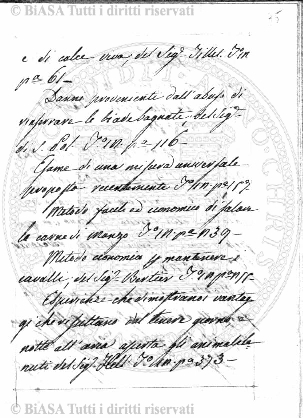 © BIASA Tutti i diritti riservati
5
e di calce viva del Sig.r Tilles. T.o n
p.a 61 —
Danno proveniente dall'abuso di
rinserrare le biade bagnate, del Sig.r
di S. Pol. T.o 1 n. p.a 116 —
Esame di una misura universale
proposta recentemente T.o 1 n. p.a
Metodo facile ed economico di salare
la carne di manzo T.o 1 n. p.a 239 —
Metodo economico p mantenere
cavalli, del Sig.r T.o 1 n. p.a
Esperienze che dimostrano i vantag
gi che risultano dal tenere giorno e
notte all'aria aperta gli animali le
nuti del Sig.r Hell. T.o 1 n. p.a 373 —
© BIASA Tutti i diritti riservati